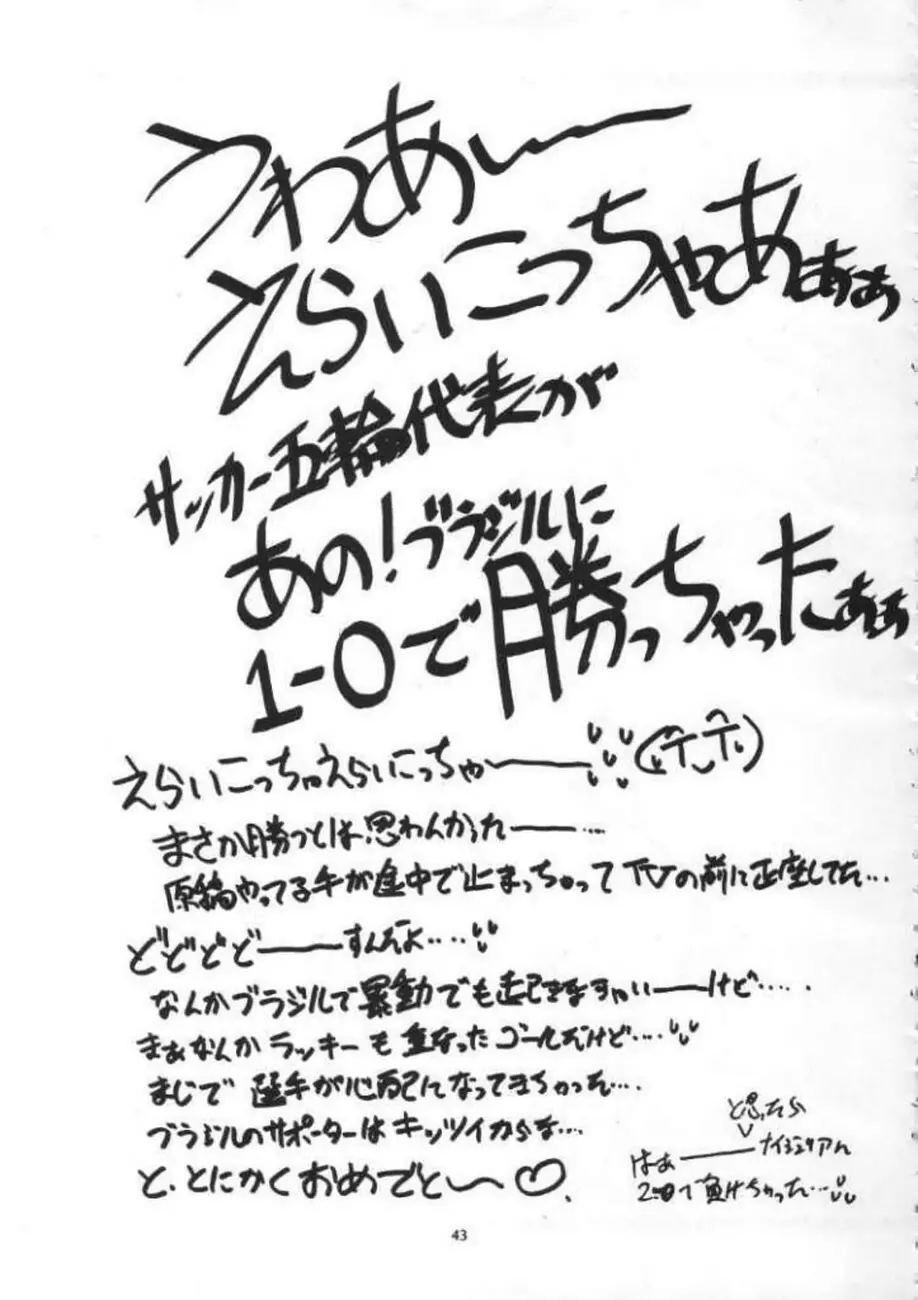 うわあぃーー
えらいこっちゃあぁぁ
サッカー五輪代表が
あの!ブラジルに
1-0で勝っちゃったぁぁ
えらいこっちゃえらいこっちゃーー
まさか勝つとは思わんかったーー…
原稿やってる手が途中で止まっちゃってTVの前に正座してた…
どどどどーーすんだよ‥‥
なんかブラジルで暴動でも起きなきゃいーーけど‥‥
まぁなんかラッキーも重なったゴールだけど‥‥
まじで選手が心配になってきちゃった…
ブラジルのサポーターはキッツイからな…
と、とにかくおめでとー♡
と思ったら
はぁーーナイジェリアに
2-0で負けちゃった…
43